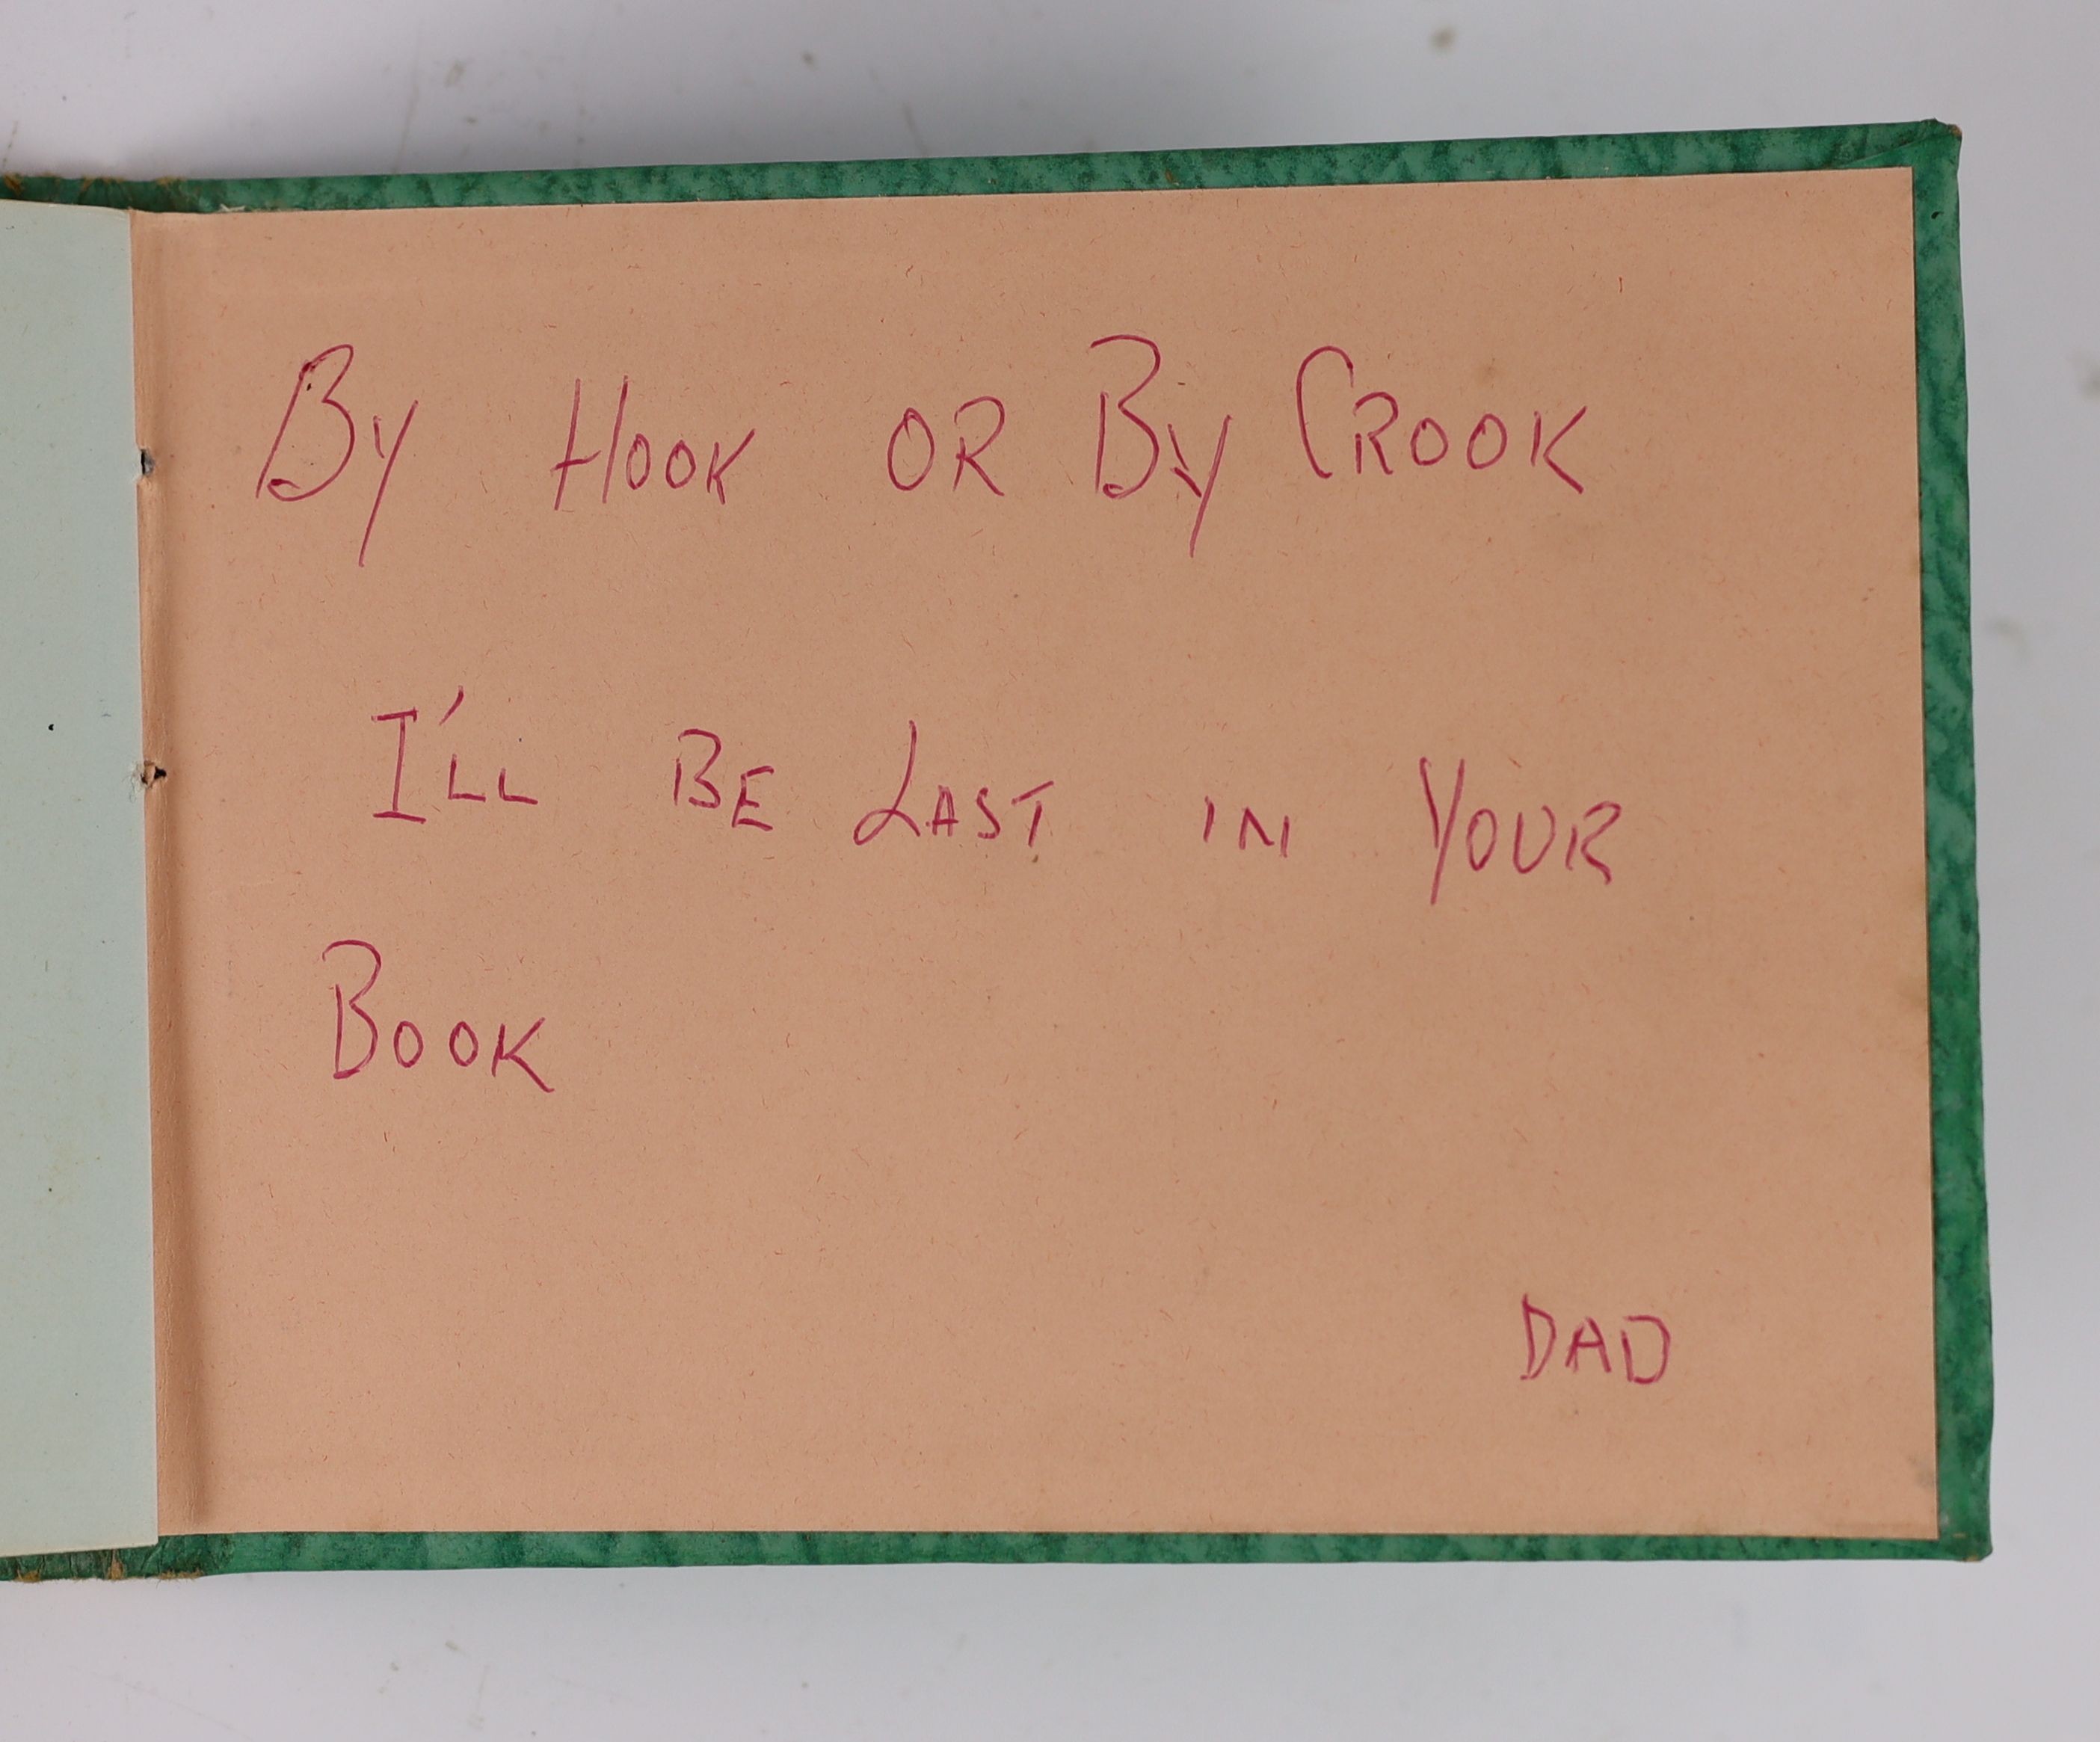 By HOOK OR By CROOK
I'LL BE LAST IN YOUR
BOOK
DAD